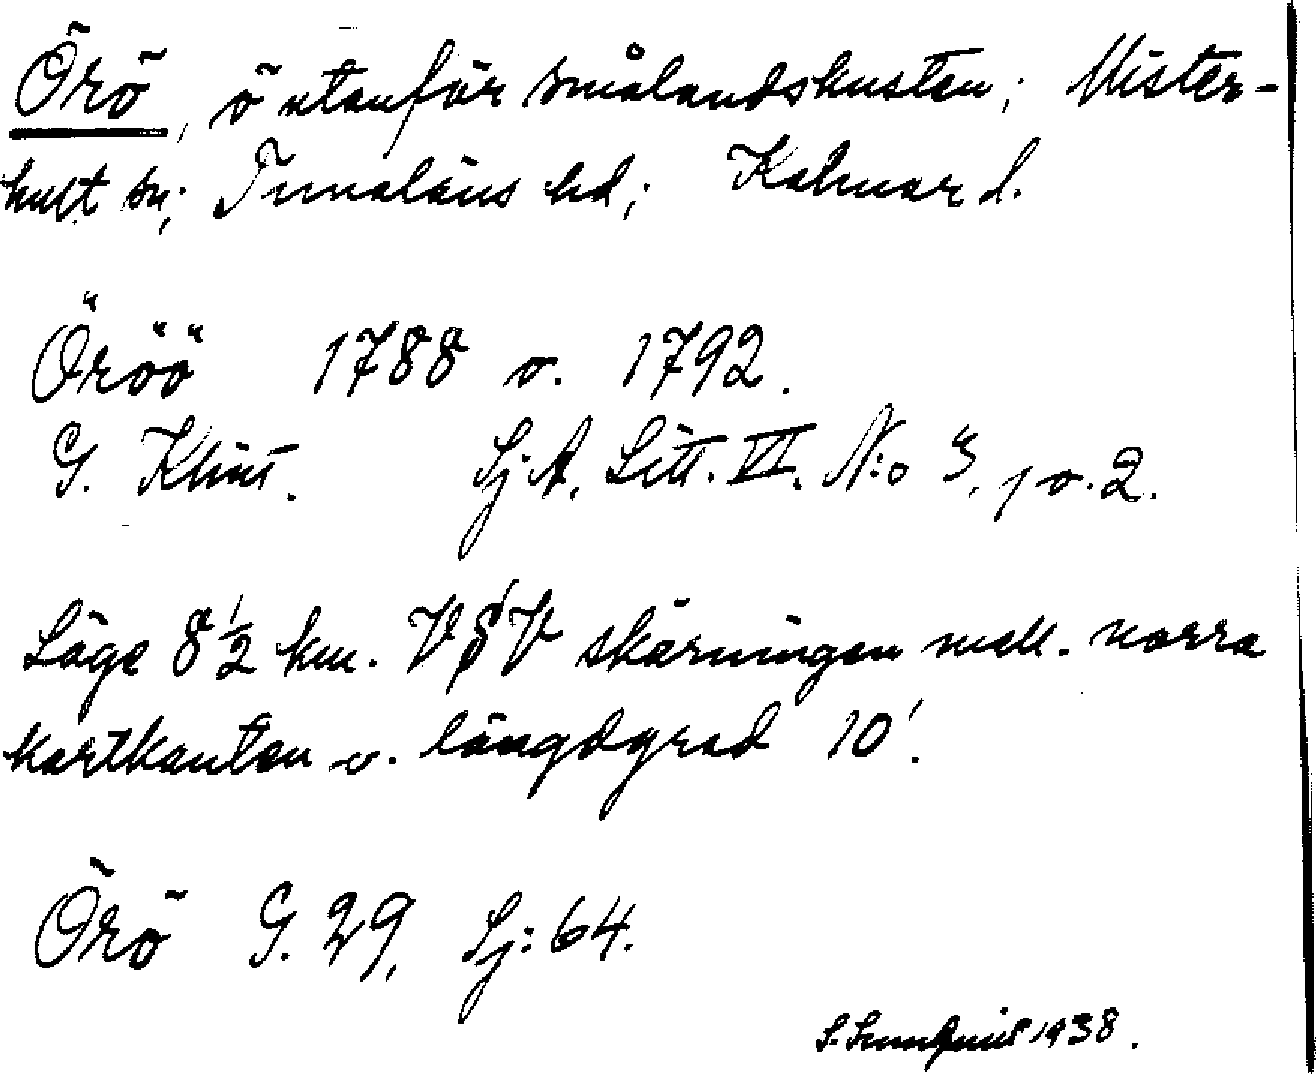 Örö, ö utanför Smålandskusten; Mister-
hult sn; Tunaläns hd; Kalmar l.
Öröö 1788 o. 1792.
G. Klint. Sj:A, Litt. VI. N:o 3, 1 o. 2.
Läge 8 1/2 km. V skärningen mell. norra
kartkanten o. längdgrad 10'.
Örö G. 29, Sj: 64.
1938.